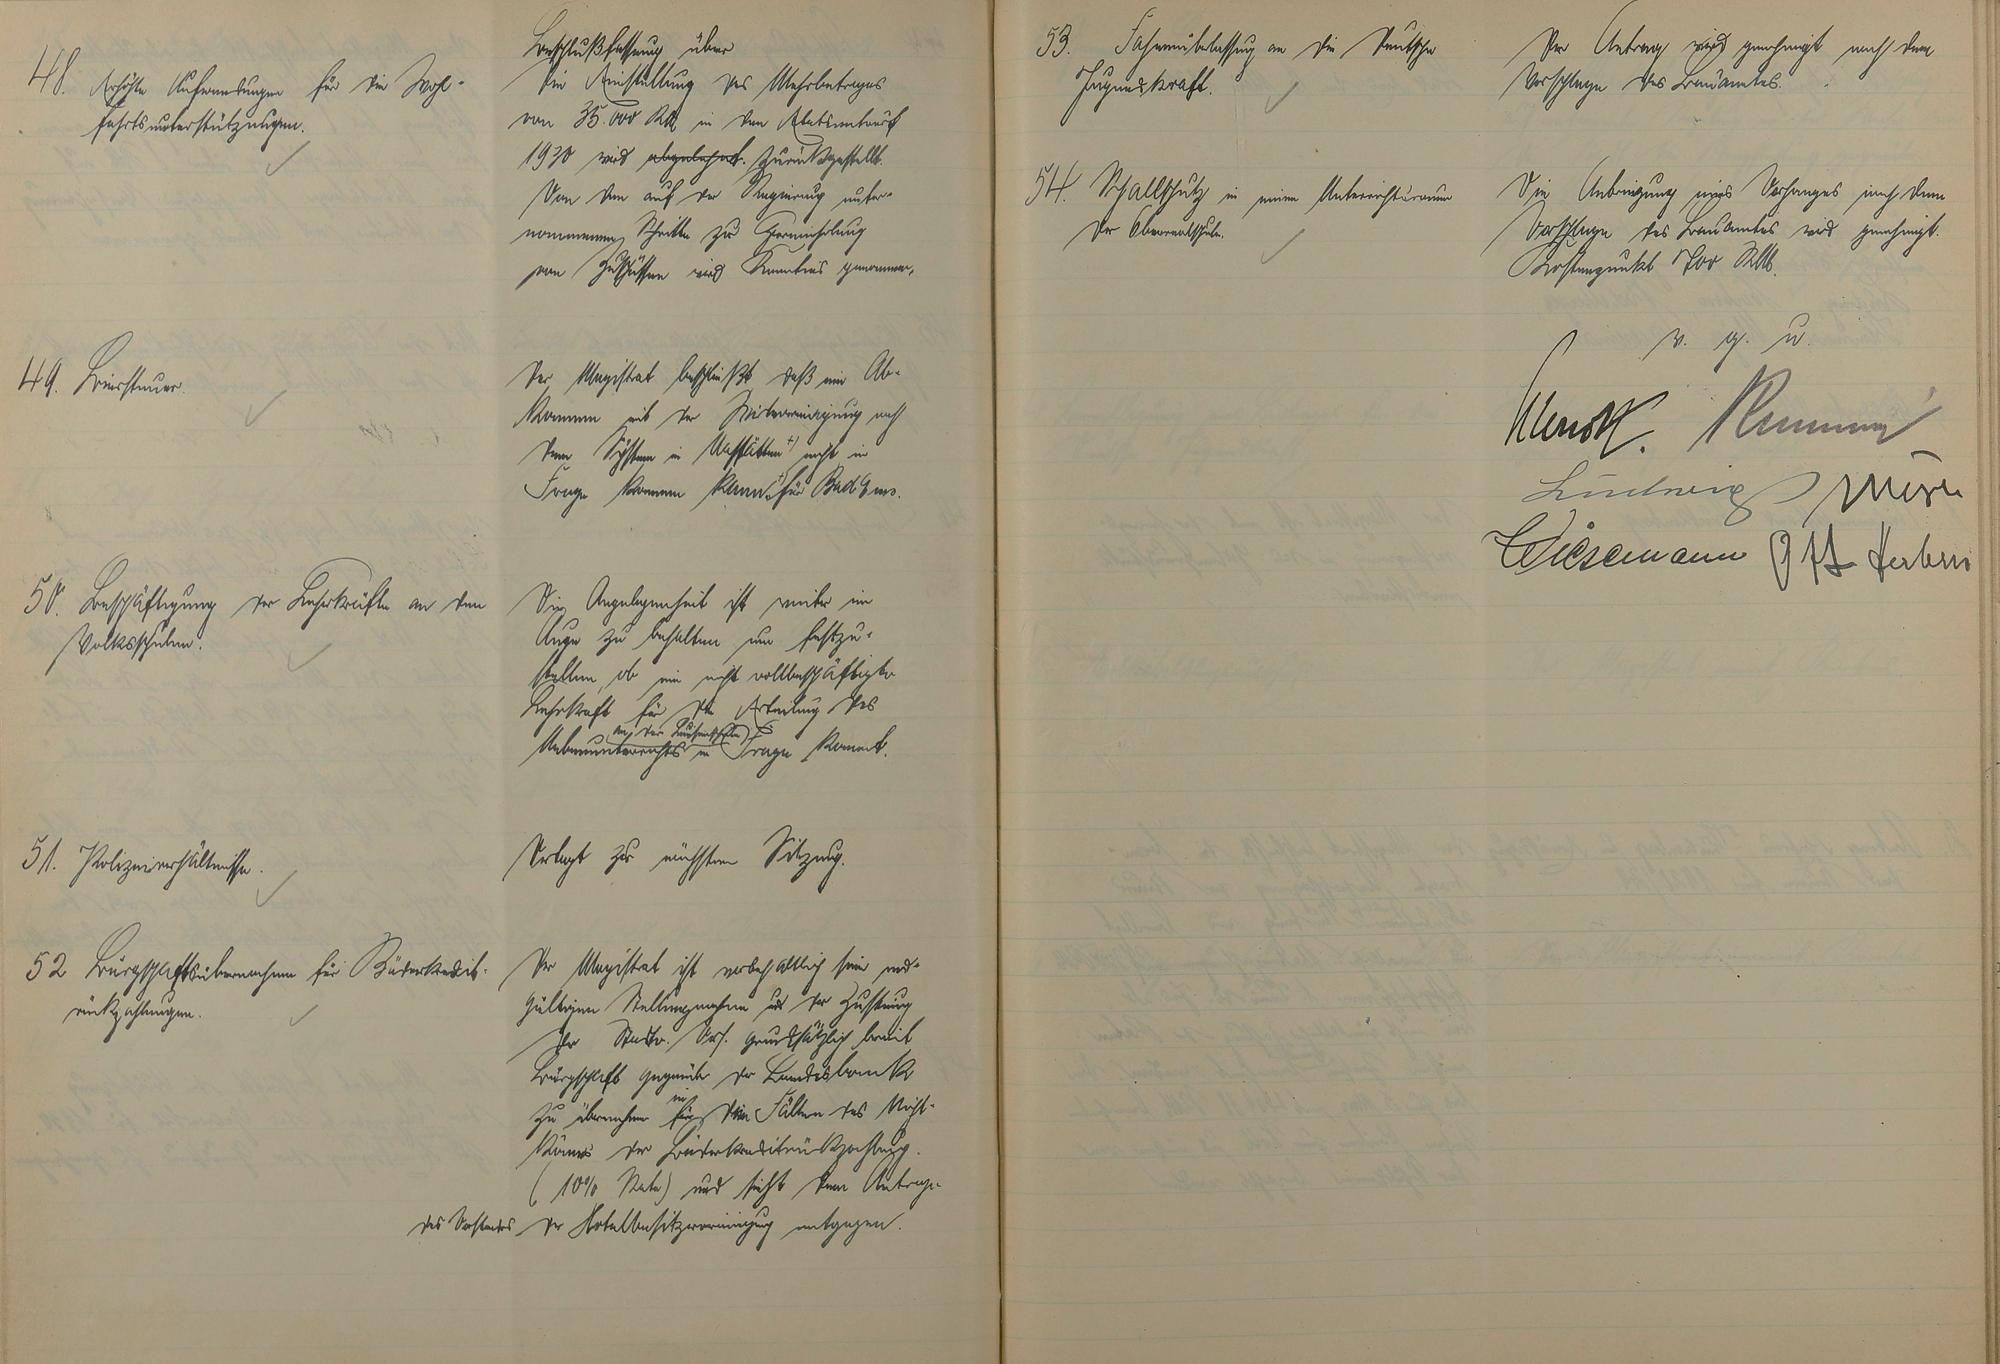 48. Erhöhte Aufwendungen für die Wohl-
fahrtsunterstützungen.
Beschlußfassung über
die Einstellung des Mehrbetrages
von 35.000 RM in den Etatsentwurf
1930 wird abgelehnt. zurückgestellt.
Von den auf der Regierung unter-
nommenen Schritten zur Herbeiholung
von Zuschüssen wird Kenntnis genommen.
49. Biersteuer.
Der Magistrat beschließt daß ein Ab-
kommen mit der Wirtevereinigung nach
dem System in Nastätten +) nicht in
Frage kommen kann. +) für Bad Ems.
50. Beschäftigung der Lehrkräfte an den
Volksschulen.
Die Angelegenheit ist weiter im
Auge zu behalten um festzu-
stellen, ob eine nicht vollbeschäftigte
Lehrkraft für die Erteilung des
(an der Luisenschule)
Nebenunterrichts in Frage kommt.
51. Polizeiverhältnisse.
Vertagt zur nächsten Sitzung.
52 Bürgschaftsübernahme für Bäderkredit-
rückzahlungen.
Der Magistrat ist vorbehaltlich seiner end-
gültigen Stellungnahme u. der Zustimmung
der Stadtv. Vers. grundsätzlich bereit
Bürgschaft gegenüber der Landesbank
in
zu übernehmen für den Fällen des Nicht-
könnens der Bäderkreditrückzahlung.
(10% Rate) und sieht dem Antrage
des Vorstandes der Hotelbesitzervereinigung entgegen.
53. Fahnenüberlassung an die Deutsche
Jugendkraft.
Der Antrag wird genehmigt nach dem
Vorschlage des Bauamtes.
54. Schallschutz in einem Unterrichtsraum
der Oberrealschule.
Die Anbringung eines Vorhanges nach dem
Vorschlage des Bauamtes wird genehmigt.
Kostenpunkt 700 RM.
v. g. u.
Ludwig
Wiesemann Ott